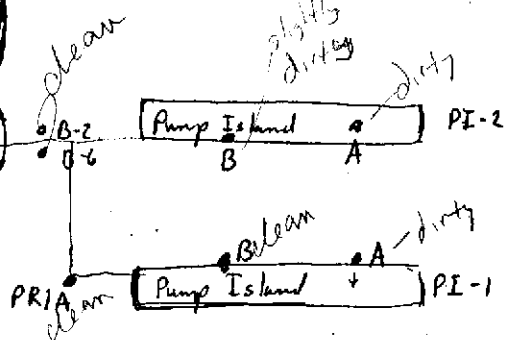 clean
slightly
dirty
dirty
B-2
Pump Island
PI-2
B
A
B clean
A
dirty
PR1A
clean
Pump Island
PI-1